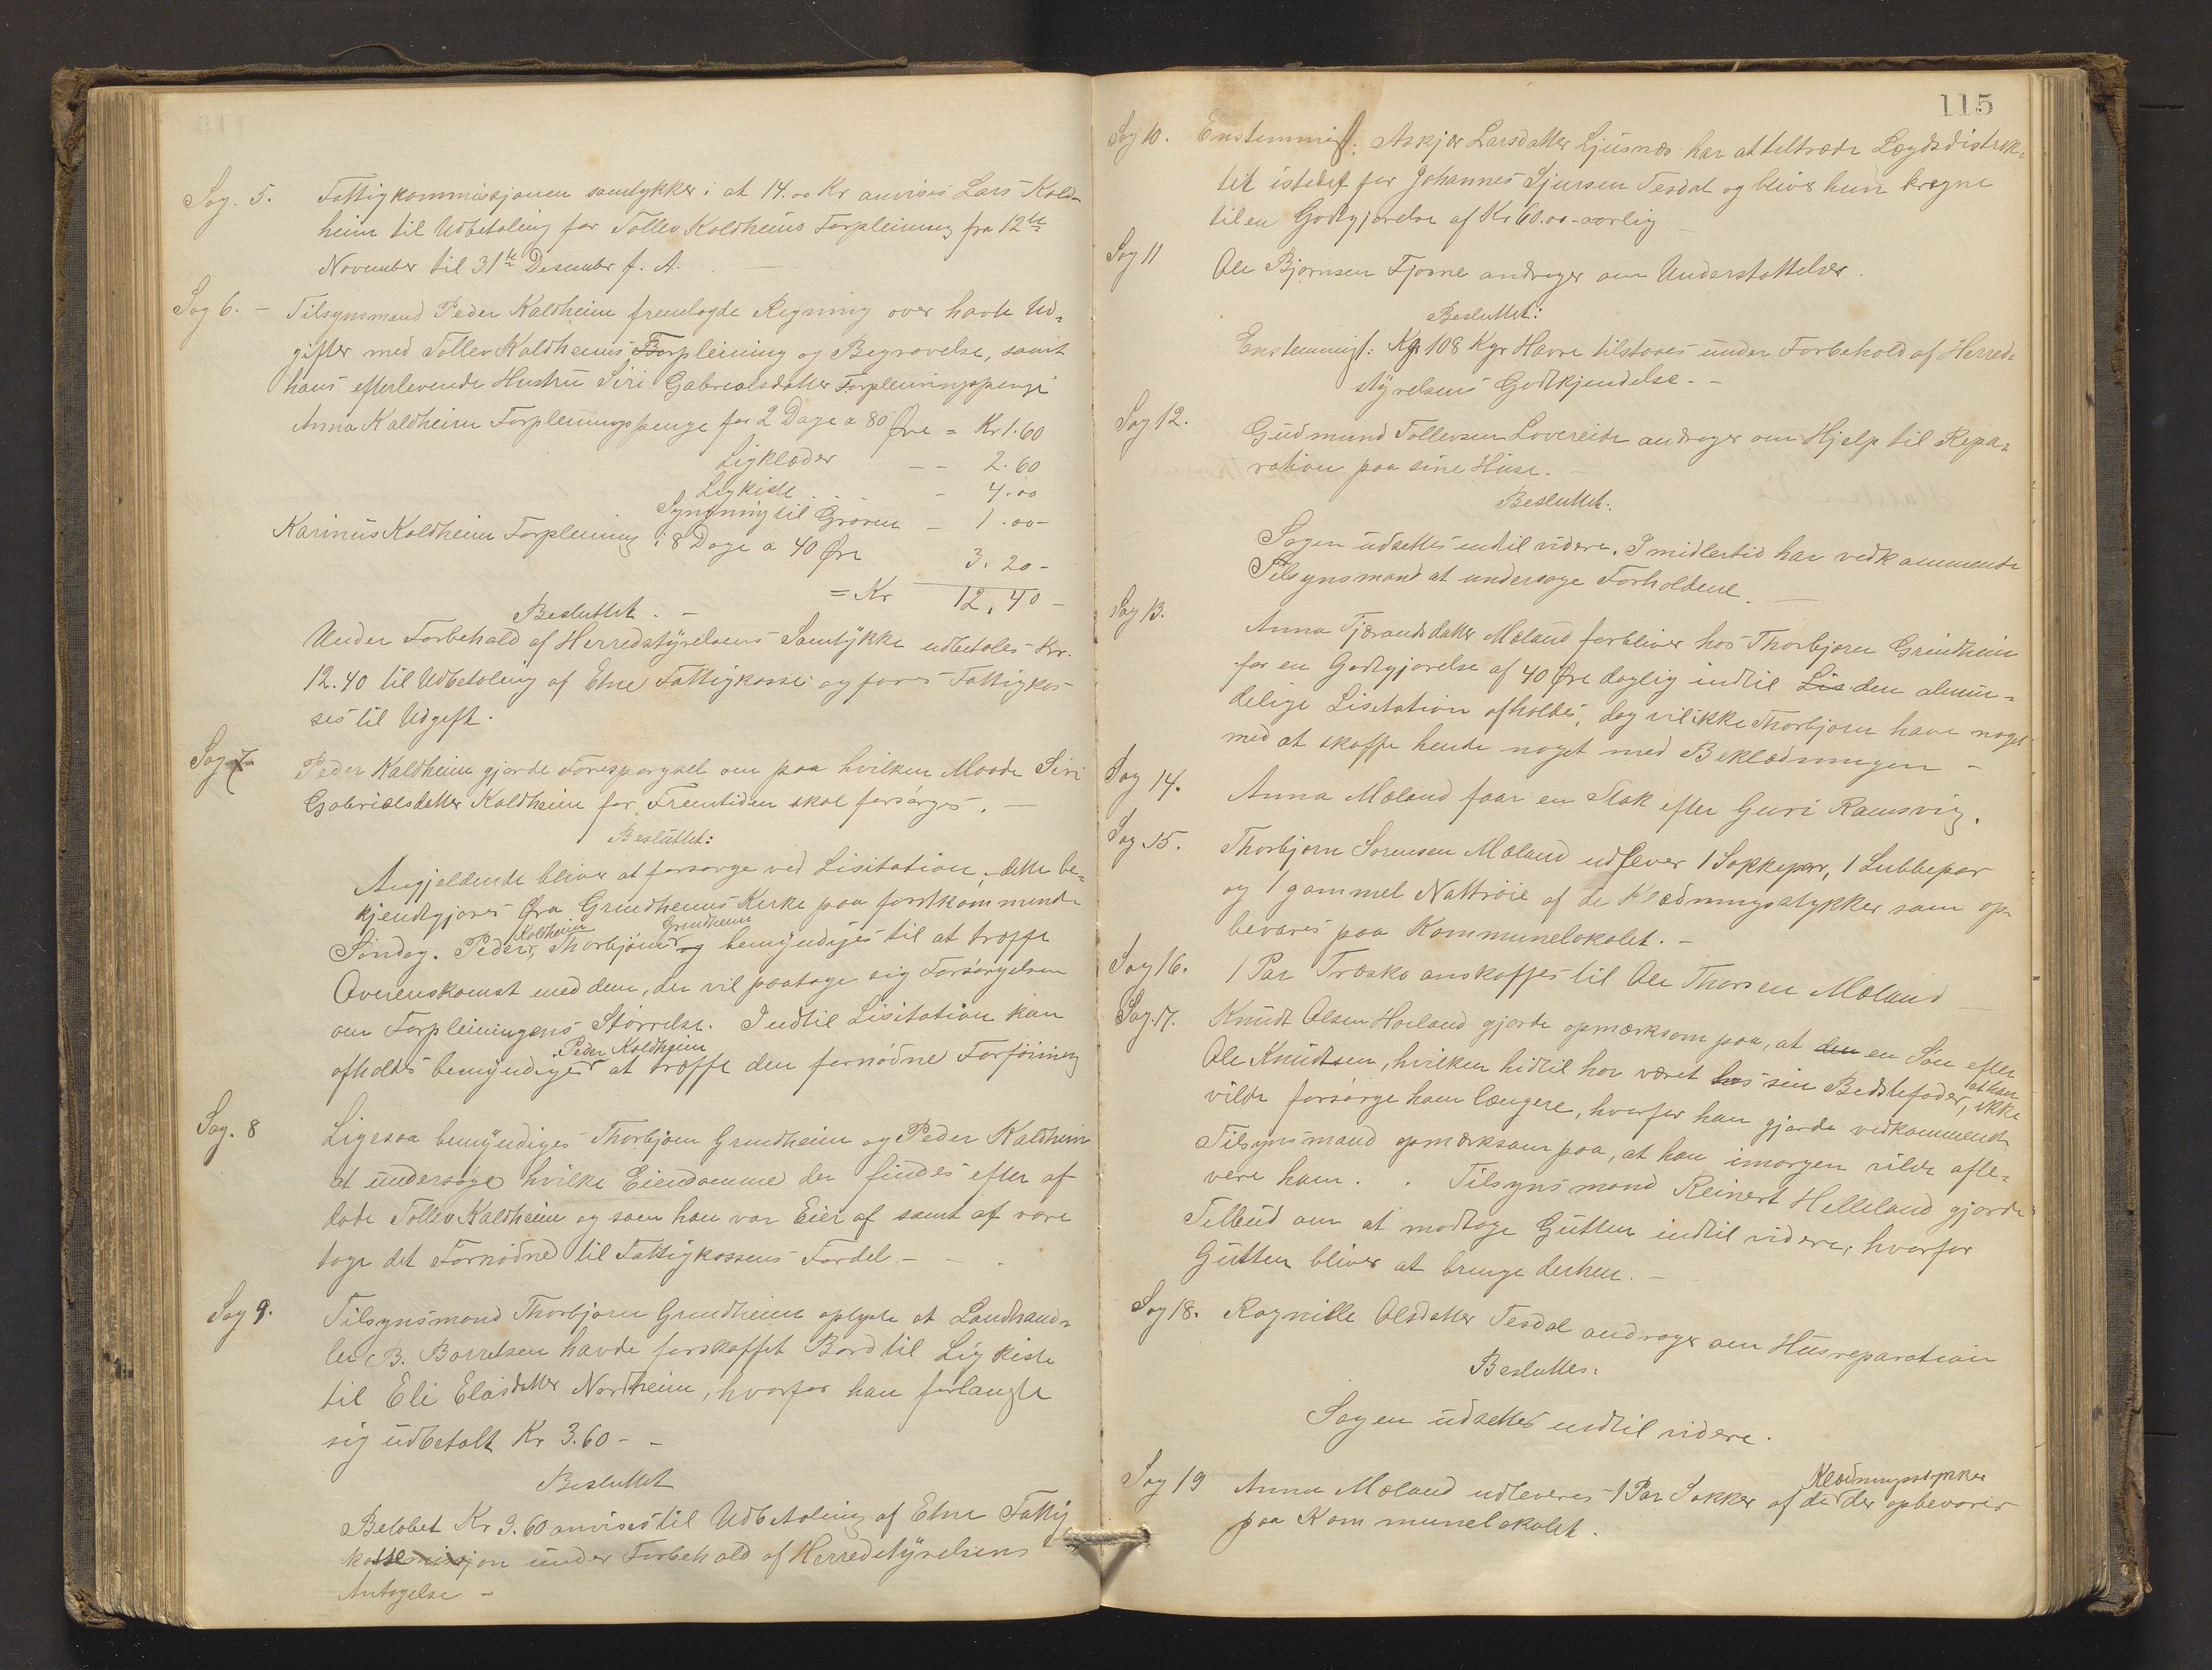 Sag. 5. Fattigkommissjonen samtykker i at 14.00 Kr anvises Lars Kald-
heim til Udbetaling for Tollev Kaldheims Forpleining fra 12te
November til 31te Desember f. A. —
Sag 6. – Tilsynsmand Peder Kaldheim fremlagde Regning over havte Ud-
gifter med Tollev Kaldheims Forpleining og Begravelse, samt
hans efterlevende Hustru Siri Gabrielsdatter Forpleiningspenge
Anna Kaldheim Forpleiningspenge for 2 Dage a 80 Øre = Kr 1.60
Ligklæder – – 2.60
Ligkiste . . . – 4.00
Syngning til Graven – 1.00-
Karinus Kaldheim Forpleining i 8 Dage a 40 Øre 3.20-
= Kr 12.40-
Besluttet. –
Under Forbehold af Herredstyrelsens Samtykke udbetales Kr.
12.40 til Udbetaling af Etne Fattigkasse og føres Fattigkas
ses til Udgift.
Sag 7 Peder Kaldheim gjorde Forespørgsel om paa hvilken Maade Siri
Gabrielsdatter Kaldheim for Fremtiden skal forsørges. —
Besluttet:
Angjeldende bliver at forsørge ved Lisitation, dette be-
kjendtgjøres fra Grindheims Kirke paa førstkommende
Søndag. Peder Kaldheim, Thorbjørn Grindheim og bemyndiges til at træffe
Overenskomst med dem, der vil paatage sig Forsørgelsen
om Forpleiningens Størrelse. Indtil Lisitation kan
afholdes bemyndiges Peder Kaldheim at træffe den fornødne Forføining
Sag. 8 Ligesaa bemyndiges Thorbjørn Grindheim og Peder Kaldheim
at undersøge hvilke Eiendomme der findes efter af
døde Tollev Kaldheim og som han var Eier af samt at vare
tage det Fornødne til Fattigkassens Fordel – – .
Sag 9. Tilsynsmand Thorbjørn Grindheim oplyste at Landhand-
ler B. Børretsen havde forskaffet Bord til Ligkiste
til Eli Eliasdatter Nordheim, hvorfor han forlangte
sig udbetalt Kr 3.60 – –
Besluttet
Beløbet Kr 3.60 anvises til Udbetaling af Etne Fattig
kassemisjon under Forbehold af Herredstyrelsens
Antagelse –
115
Sag 10. Enstemmigt: Askjær Larsdatter Ljusnæs har at tiltræde Lægdsdistrik-
tet istedet for Johannes Sjursen Tesdal og bliver hun kregne
til en Godtgjørelse af Kr 60.00 aarlig
Sag 11 Ole Bjørnsen Fjøsne andrager om Understøttelse.
Besluttet:
Enstemmigt: Kgr 108 Kgr Havre tilstaaes under Forbehold af Herreds
styrelsens Godkjendelse. –
Sag 12. Gudmund Tollevsen Lovereide andrager om Hjelp til Repa-
ration paa sine Huse. –
Besluttet.
Sagen udsettes indtil videre. Imidlertid har vedkommende
Tilsynsmand at undersøge Forholdene. —
Sag 13. Anna Tjærandsdatter Mæland forbliver hos Thorbjørn Grindheim
for en Godtgjørelse af 40 Øre daglig indtil Lis den almin-
delige Lisitation afholdes, dog vil ikke Thorbjørn have noget
med at skaffe hende noget med Beklædningen –
Sag 14. Anna Mæland faar en Stak efter Guri Ramsvig.
Sag 15. Thorbjørn Sørensen Mæland udlever 1 Sokkepar, 1 Lubbepar
og 1 gammel Nattrøie af de Klædningsstykker som op-
bevares paa Kommunelokalet. –
Sag 16. 1 Par Træsko anskaffes til Ole Thorsen Mæland
Sag. 17. Knudt Olsen Høiland gjorde opmærksom paa, at den en Søn efter
Ole Knudtsen, hvilken hidtil har været hos sin Bedstefader, at han ikke
vilde forsørge ham længere, hvorfor han gjorde vedkommende
Tilsynsmand opmærksom paa, at han imorgen vilde afle-
vere ham. . Tilsynsmand Reinert Helleland gjorde
Tilbud om at modtage Gutten indtil videre, hvorfor
Gutten bliver at bringe derhen. –
Sag 18. Ragnille Olsdatter Tesdal andrager om Husreparation
Besluttes:
Sagen udsettes indtil videre.
Sag 19 Anna Mæland udleveres 1 Par Sokker af de Klædningsstykker der opbevares
paa Kommunelokalet.